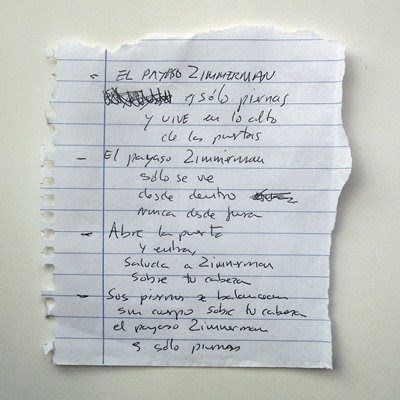 - EL PAYASO ZIMMERMAN
es sólo piernas
y VIVE en lo alto
de las puertas
- El payaso Zimmerman
sólo se ve
desde dentro
nunca desde fuera
- Abre la puerta
y entra,
saluda a Zimmerman
sobre tu cabeza
- Sus piernas se balancean
sin cuerpo sobre tu cabeza
el payaso Zimmerman
es sólo piernas